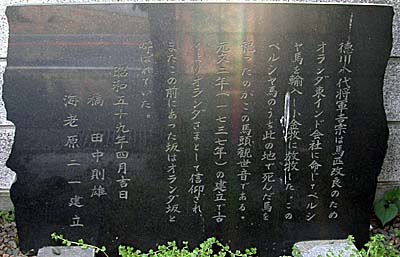 徳川八代将軍吉宗は馬匹改良のため
オランダ東インド会社に命じてペルシ
ヤ馬を輸入し小金牧に放牧した。この
ペルシヤ馬のうち此の地で死んだ馬を
祀ったのがこの馬頭観世音である。
元文二年(一七三七年)の建立で古
くよりオランダさまとして信仰され
またこの前にあった坂はオランダ坂と
呼ばれていた。
昭和五十九年四月吉日
稿 田中則雄
海老原二一建立